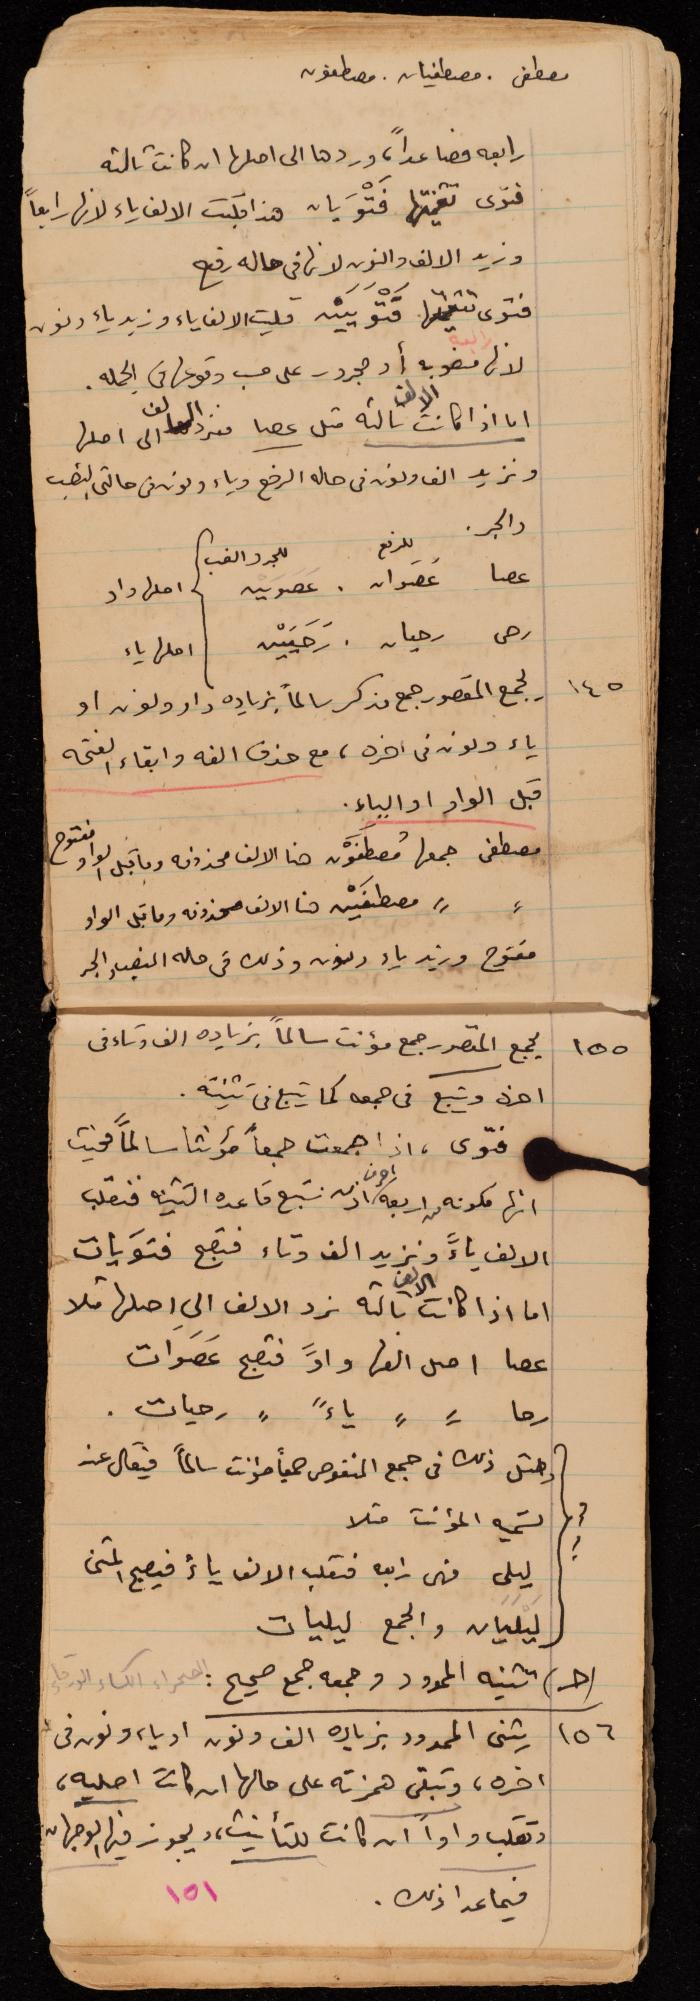 مصطفى . مصطفيان . مصطفون
رابعه فصاعداً، وردها الى اصلها ان كانت ثالثه
فتوى تثنيتها فَتْوَيان هنا قلبت الالف ياء لانها رابعاً
وزيد الالف والنون لانها فى حاله رفع
فتوى تثنيتها فَتْوَيَيْن قلبت الالف ياء وزيد ياء ونون
رابعة
لانها منصوبه أو مجرور على حسب وقوعها فى الجمله .
اما اذا كانت الالف ثالثه مثل عصا فنرد الالف الى اصلها
ونزيد الف ونون فى حاله الرفع وياء ونون فى حالتى النصب
والجر .
للرفع للجر والنصب
عصا عَصَوان . عَصَوَيْن اصلها واو
رحى رحيان . رَحَيَيْن اصلها ياء
١٤٥ يجمع المقصور جمع مذكر سالماً بزياده واو ونون او
ياء ونون فى اخره ، مع حذف الفه وابقاء الفتحه
قبل الواو او الياء .
مصطفى جمعها مُصطَفَوْن هنا الالف محذوفه وما قبل الواو مفتوح
〃 〃 مصطفَيْن هنا الالف محذوفه وما قبل الواو
مفتوح وزيد ياء ونون وذلك فى حاله النصب والجر
١٥٥ يجمع المقصور جمع مؤنث سالماً بزياده الف وتاء فى
اخره ويتبع فى جمعه كما يتبع فى تثنيته .
فتوى ، اذا جمعت جمعاً مؤنثا سالماً فحيث
انها مكونه من اربعه احرف اذن نتبع قاعده التثنيه فنقلب
الالف ياءً ونزيد الف وتاء فتصبح فتوَيات
اما اذا كانت الالف ثالثه نرد الالف الى اصلها مثلا
عصا اصل الفها واوً فتصبح عَصَوَات
رحا 〃 〃 ياءً 〃 رحيات .
ومثل ذلك فى جمع المنقوص جمعاً مؤنث سالماً فيقال عند
تسميه المؤنث مثلا
ليلى فهى رابعه فنقلب الالف ياءً فيصبح المثنى
لَيْلَيَان والجمع ليليات
(حـ) تثنيه الممدود وجمعه جمع صحيح : الصحراء الكساء
١٥٦ يثنى الممدود بزياده الف ونون او ياء ونون فى
اخره ، وتبقى همزته على حالها ان كانت اصليه ،
وتقلب واواً ان كانت للتأنيث ، ويجوز فيها الوجهان
فيما عدا ذلك .
١٥١